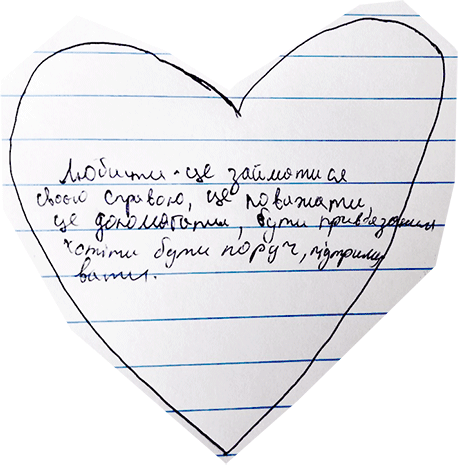 Любити - це займатися
своєю справою, це поважати,
це допомагати, бути прив'язаним
хотіти бути поруч, підтриму
вати.